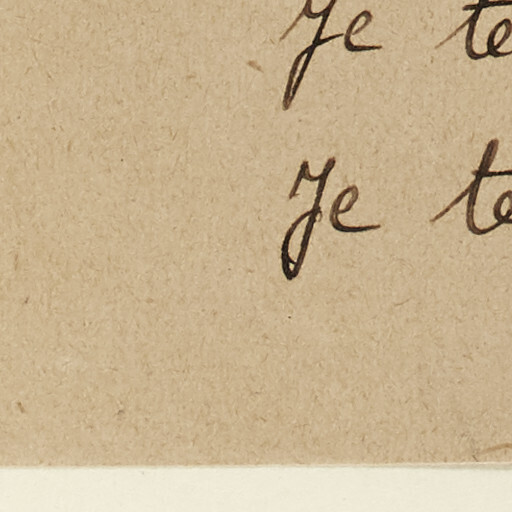 Je te
Je te